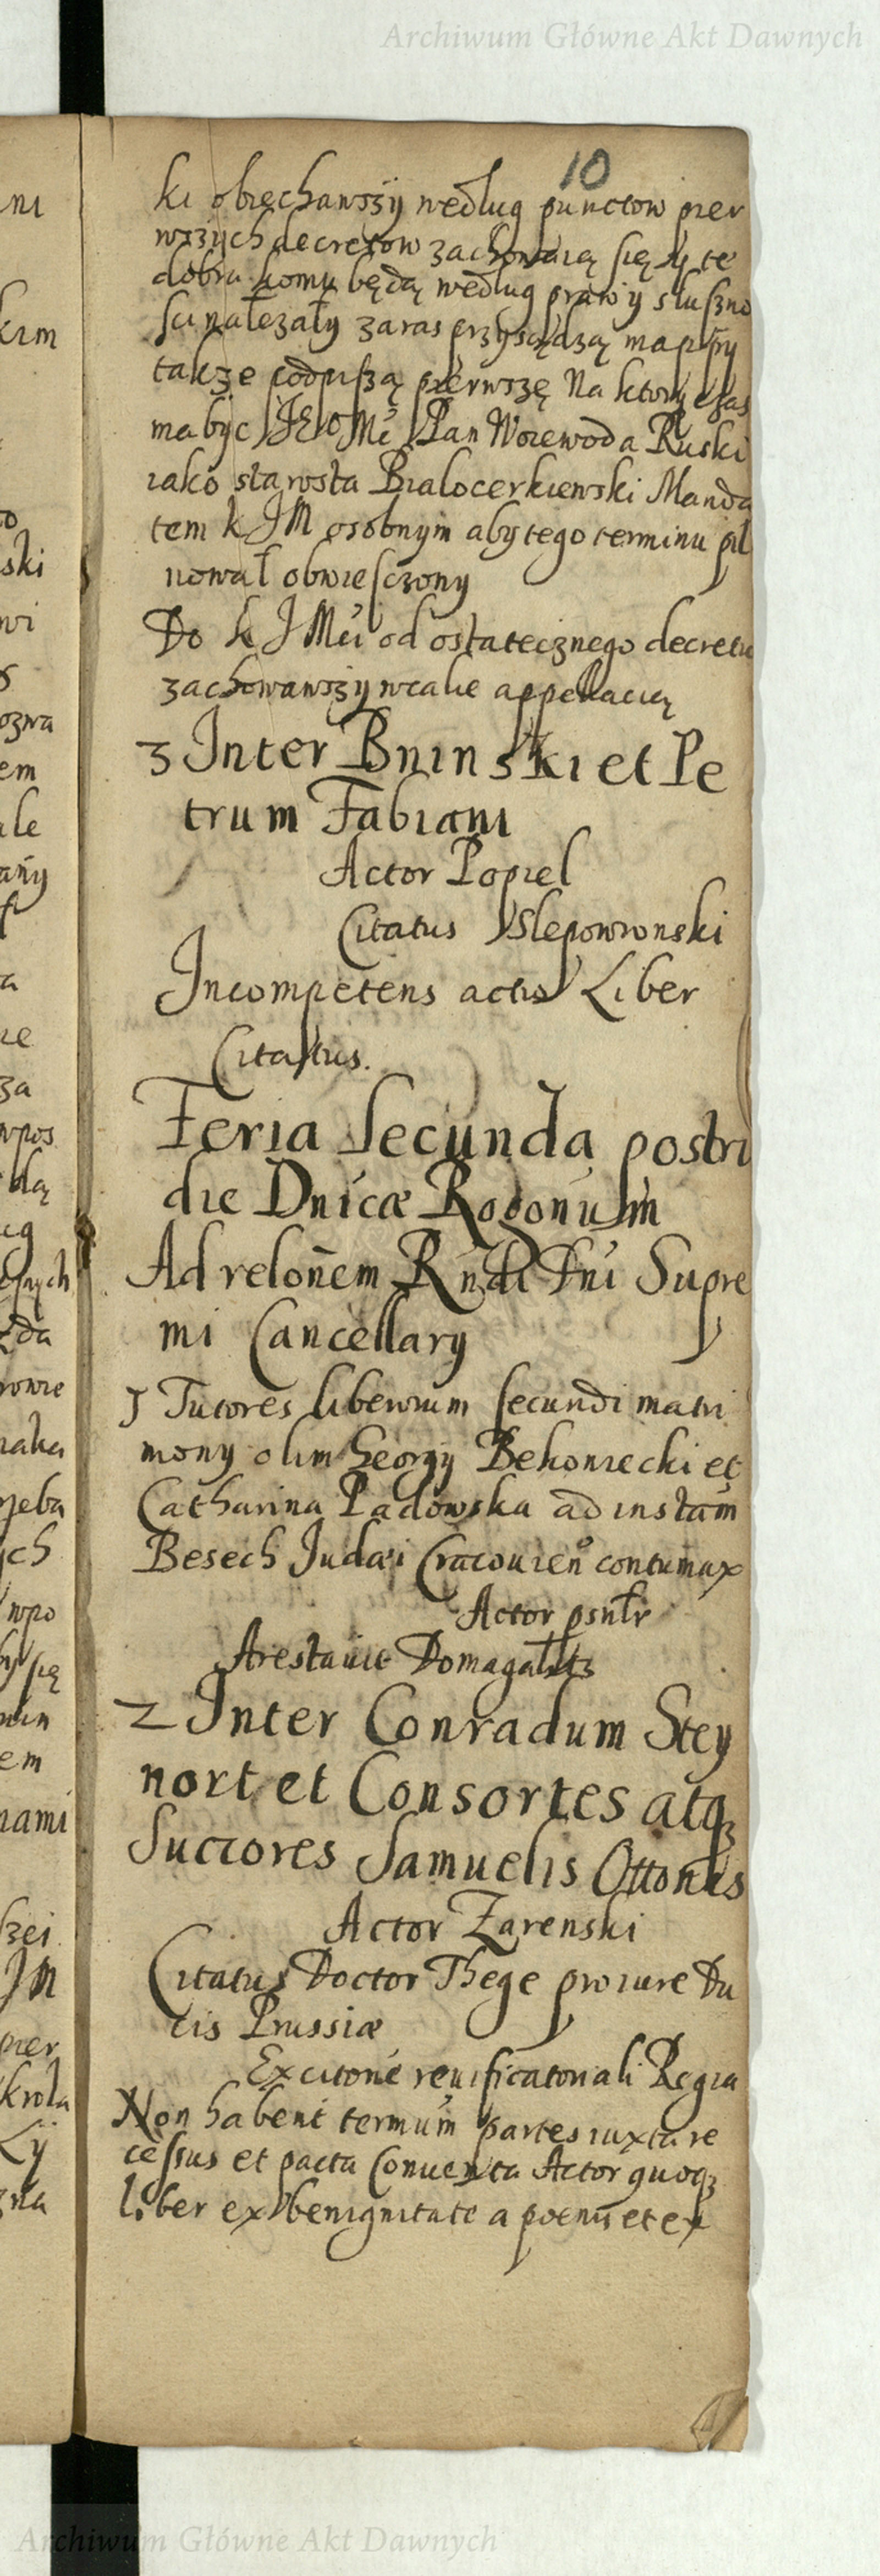 Archiwum Główne Akt Dawnych
10
ki obiechawszÿ według punctow pier
wszych decretow zachowaią się y te
dobra komu będą według prawa y słuszno
sci należały zaras przysądzą mappÿ
takze podpiszą pierwszę Na ktory czas
ma byc JEO Mć Pan Woiewoda Ruski
iako starosta Bialocerkiewski Manda
tem k JM osobnym aby tego terminu pil
nował obwiesczony
Do k J Mći od ostatecznego decretu
zachowawszy wcale appellacią
3 Inter Bninski et Pe
trum Fabiani
Actor Popiel
Citatus Slepowronski
Incompetens actio Liber
Citatus.
Feria Secunda postri
die Dnicæ Rogonum
Ad relonem Rndi Dni Supre
mi Cancellary
1 Tutores liberorum secundi matri
mony olim Georgy Bekoniecki et
Catharina Padowska ad instam
Besech Judæi Cracovien contumax
Actor psntr
Arestavit Domagalsk
2 Inter Conradum Stey
nort et Consortes atq3
Suctores Samuelis Ottonis
Actor Zarenski
Citatus Doctor Thege pro iure Du
cis Prussiæ
Ex citone reuificatoriali Regia
Non habent termum partes iuxta re
cessus et pacta Conventa Actor quoq3
liber ex benignitate a poenis et ex
Archiwum Główne Akt Dawnych